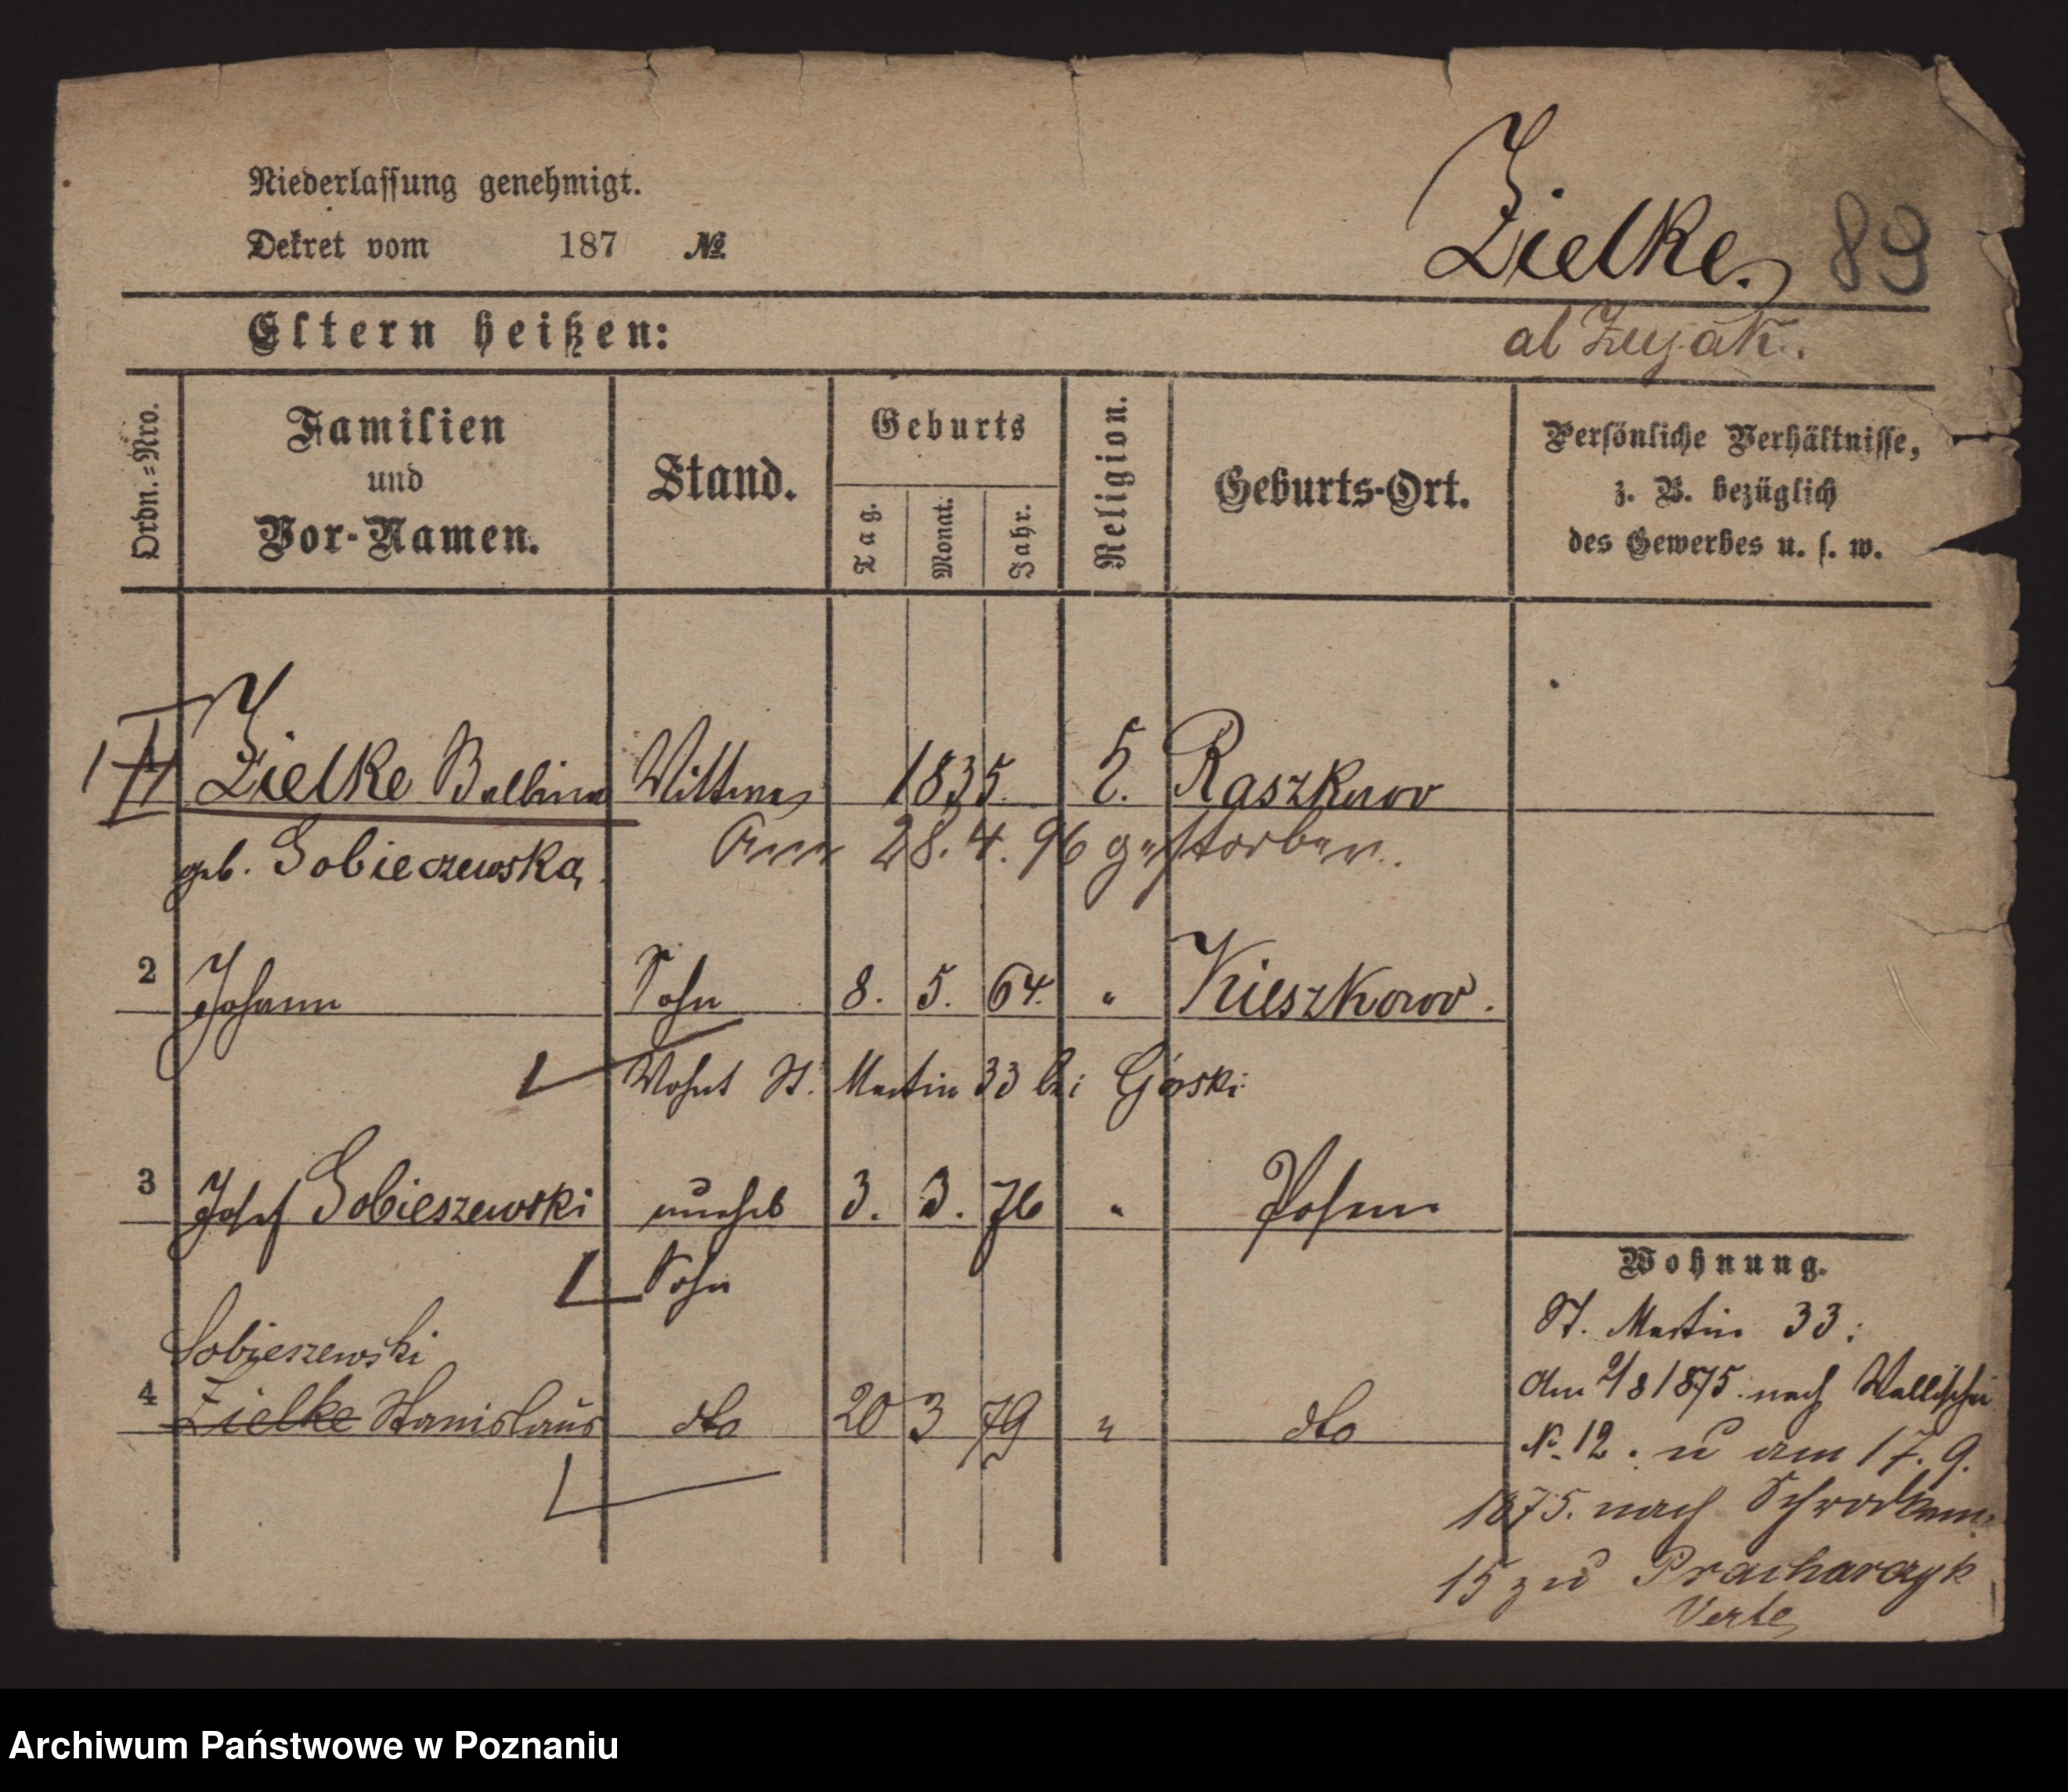 Niederlassung genehmigt.
Dekret vom 187 №
Zielke. 89
Eltern heißen:
al
Ordn.=Nro.
Familien
und
Vor-Namen.
Stand.
Geburts
Tag.
Monat.
Jahr.
Religion.
Geburts-Ort.
Persönliche Verhältnisse,
z. B. bezüglich
des Gewerbes u. s. w.
1 Zielke Balbina Wittwe 1835. k. Raszkow
geb. Sobieczewska
Am 28. 4. 96 gestorben.
2 Johann Sohn 8. 5. 64. " Kieszkowo.
Wohnt St. Martin 33 bei Górski
3 Josef Sobieszewski unehel 3. 3. 76 " Posen
Sohn
Sobieszewski
4 Zielke Stanislaus dto 20 3 79 " dto
Wohnung.
St. Martin 33.
Am 2/8 1875. nach Wallischei
No. 12. u am 17. 9.
1875. nach
15 zu Pracharczyk
Verte